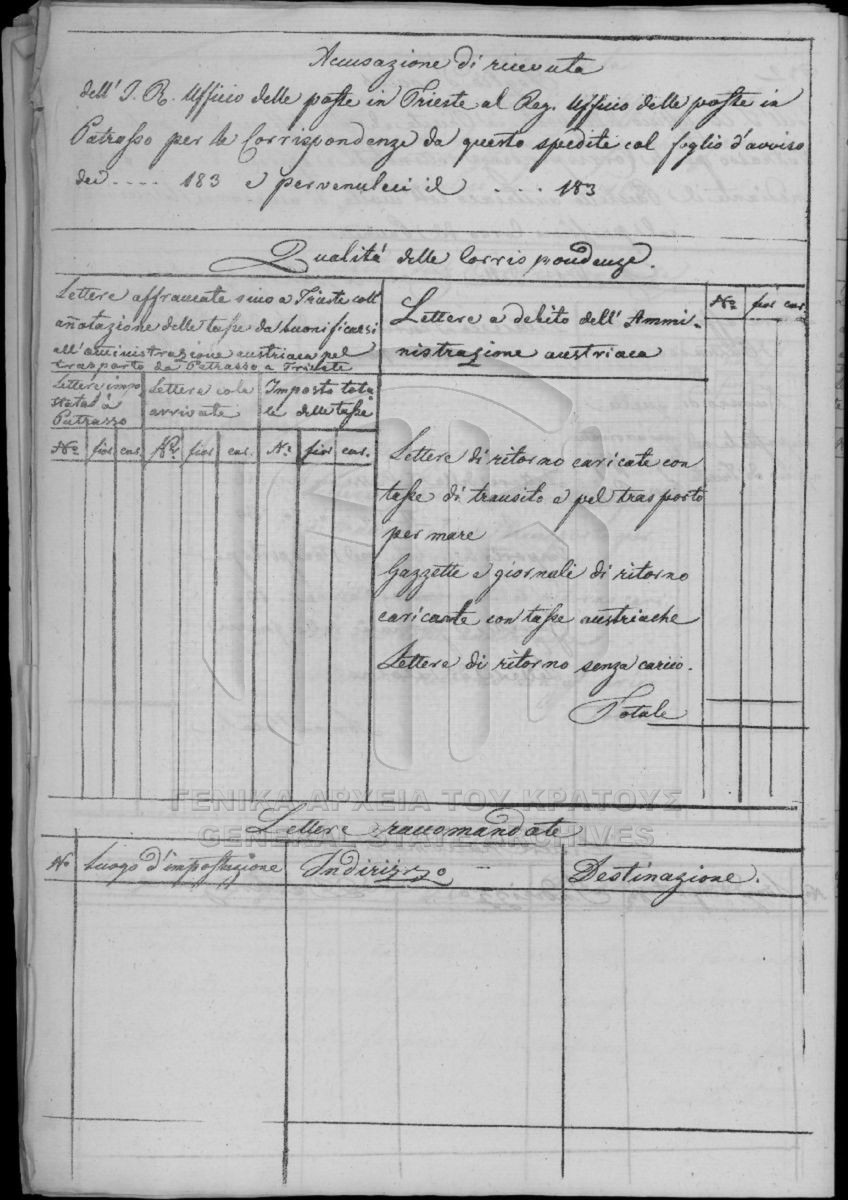 Accusazione di ricevuta
dell' I. R. Ufficio delle poste in Trieste al Reg. Ufficio delle poste in
Patrasso per le Corrispondenze da questo spedite col foglio d'avviso
dei .... 183 e pervenuteci il .... 183
Qualitá delle Corrispondenze.
Lettere affrancate sino a Trieste coll'
añotazione delle tasse da buonificarsi
all'aministrazione austriaca pel
trasporto da Patrasso a Trieste
Lettere impo
stata á
Patrasso
Lettere cola
arrivate
Importo tota
le delle tasse
No fior car. No fior car. No fior car.
Lettere a debito dell' Ammi-
nistrazione austriaca
No fior car.
Lettere di ritorno caricate con
tasse di transito e pel trasporto
per mare
Gazzette e giornali di ritorno
caricate con tasse austriache
Lettere di ritorno senza carico.
Totale
ΓΕΝΙΚΑ ΑΡΧΕΙΑ ΤΟΥ ΚΡΑΤΟΥΣ
GENERAL STATE ARCHIVES
Lettere raccomandate
No Luogo d'impostazione Indirizzo Destinazione.